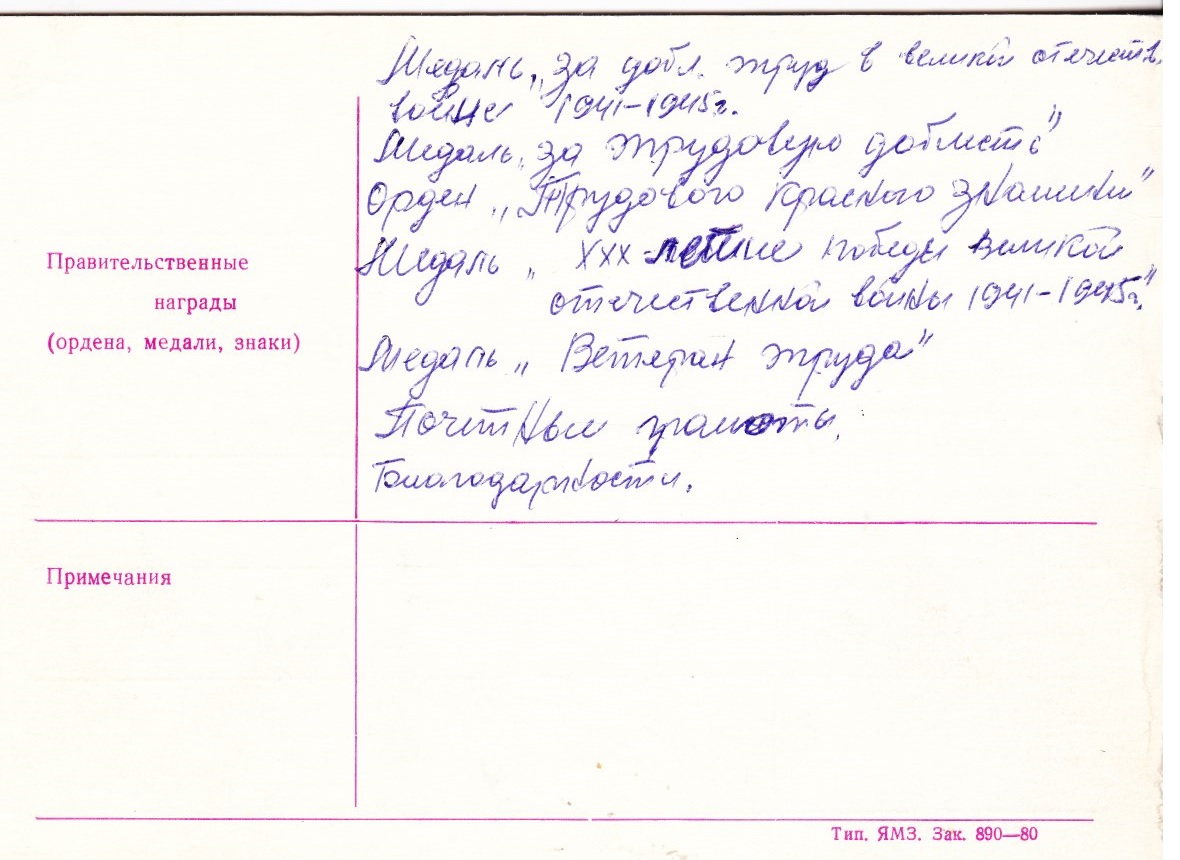 Медаль „За добл. труд в великой отечеств.
войне" 1941–1945г.
Медаль „За трудовую доблесть"
Орден „Трудового Красного Знамени"
Правительственные
награды
(ордена, медали, знаки)
Медаль „XXX-летие победы Великой
отечественной войны 1941–1945г."
Медаль „Ветеран труда"
Почетные грамоты.
Благодарности.
Примечания
Тип. ЯМЗ. Зак. 890—80